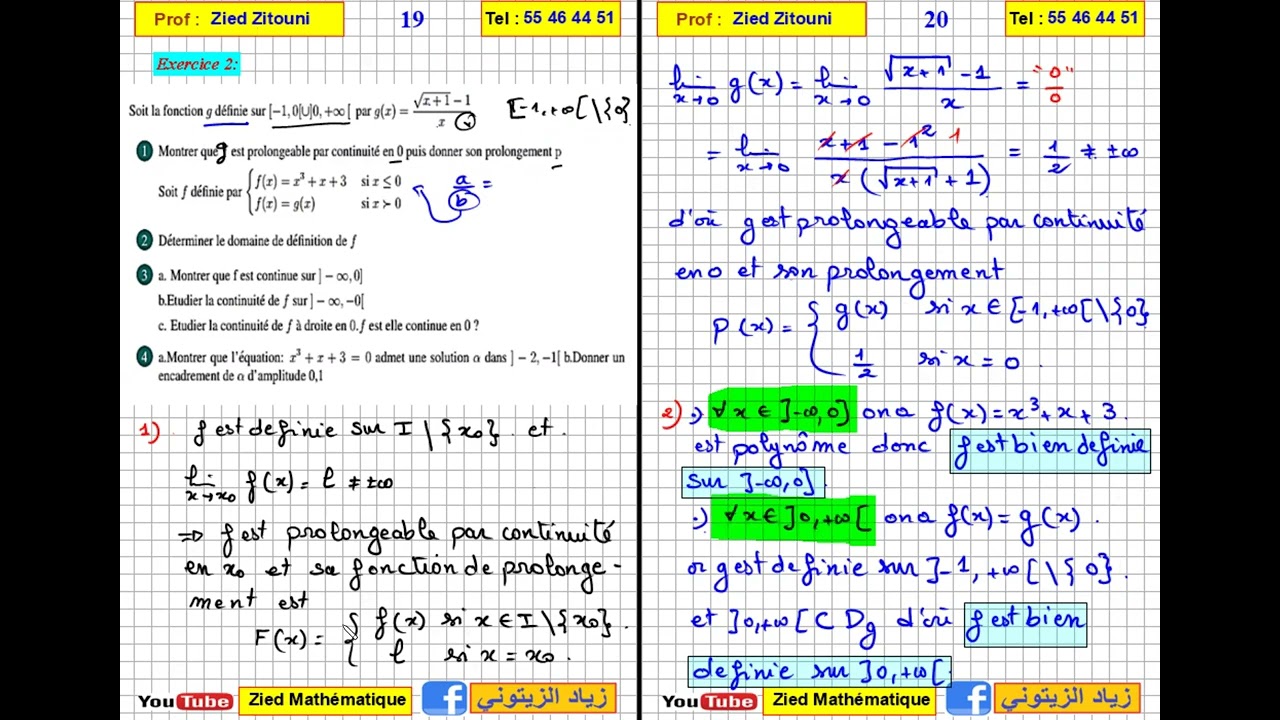 Prof : Zied Zitouni
19
Tel : 55 46 44 51
Exercice 2:
Soit la fonction g définie sur [−1, 0[∪]0, +∞[ par g(x) = (√(x+1) − 1)/x
[-1, +∞[\{0}
1 Montrer que g est prolongeable par continuité en 0 puis donner son prolongement p
Soit f définie par { f(x) = x³ + x + 3 si x ≤ 0
f(x) = g(x) si x ≻ 0
a/b =
2 Déterminer le domaine de définition de f
3 a. Montrer que f est continue sur ] − ∞, 0]
b.Etudier la continuité de f sur ] − ∞, −0[
c. Etudier la continuité de f à droite en 0. f est elle continue en 0 ?
4 a.Montrer que l'équation: x³ + x + 3 = 0 admet une solution α dans ] − 2, −1[ b.Donner un
encadrement de α d'amplitude 0,1
1) f est definie sur I \ {x₀} et
lim x→x₀ f(x) = l ≠ ±∞
⇒ f est prolongeable par continuité
en x₀ et sa fonction de prolonge-
ment est
F(x) = { f(x) si x ∈ I \ {x₀}.
l si x = x₀.
You Tube
Zied Mathématique
f
زياد الزيتوني
Prof : Zied Zitouni
20
Tel : 55 46 44 51
lim x→0 g(x) = lim x→0 (√(x+1) - 1)/x = "0/0"
= lim x→0 (x + 1 - 1² 1)/(x (√(x+1) + 1)) = 1/2 ≠ ±∞
d'où g est prolongeable par continuité
en 0 et son prolongement
P(x) = { g(x) si x ∈ [-1, +∞[ \ {0}
1/2 si x = 0.
2) .) ∀ x ∈ ]-∞, 0] on a f(x) = x³ + x + 3.
est polynôme donc f est bien definie
sur ]-∞, 0]
.) ∀ x ∈ ]0, +∞[ on a f(x) = g(x).
or g est definie sur ]-1, +∞[ \ {0}.
et ]0, +∞[ ⊂ Dg d'où f est bien
definie sur ]0, +∞[
You Tube
Zied Mathématique
f
زياد الزيتوني